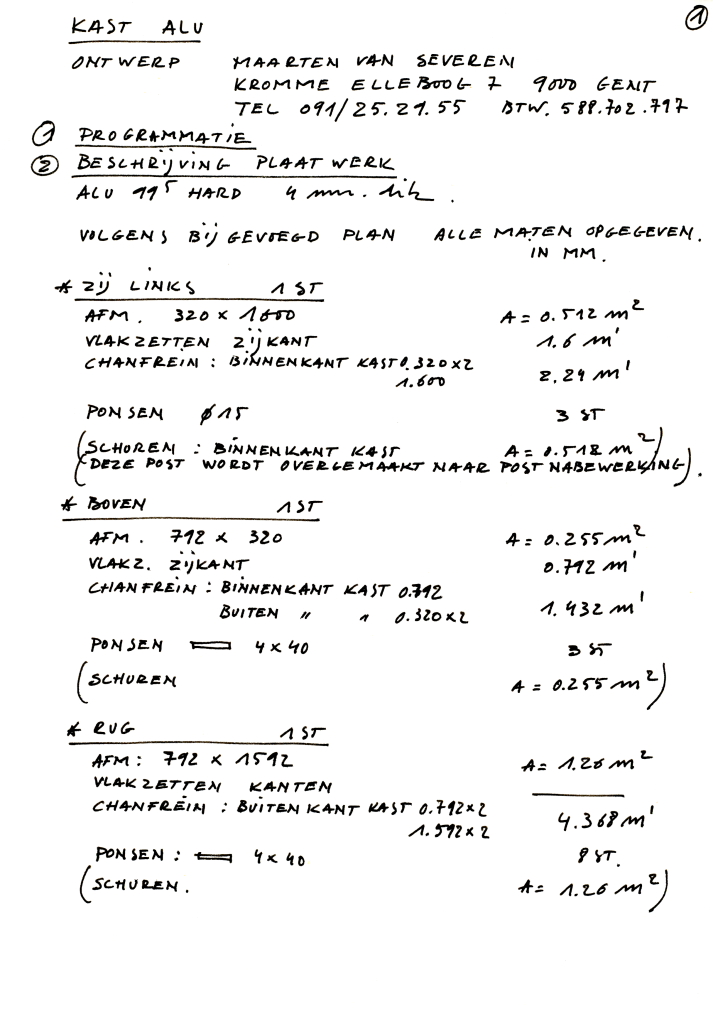 1
KAST ALU
ONTWERP MAARTEN VAN SEVEREN
KROMME ELLEBOOG 7 9000 GENT
TEL 091/25.21.55 BTW. 588.702.797
1 PROGRAMMATIE
2 BESCHRIJVING PLAATWERK
ALU 99⁵ HARD 4 mm. dik.
VOLGENS BIJGEVOEGD PLAN ALLE MATEN OPGEGEVEN.
IN MM.
* ZIJ LINKS 1 ST
AFM. 320 x 1600 A = 0.512 m²
VLAKZETTEN ZIJKANT 1.6 m'
CHANFREIN : BINNENKANT KAST 0.320x2
1.600 2.24 m'
PONSEN ø15 3 ST
(SCHUREN : BINNENKANT KAST A = 0.512 m²)
(DEZE POST WORDT OVERGEMAAKT NAAR POST NABEWERKING).
* BOVEN 1 ST
AFM. 792 x 320 A = 0.255 m²
VLAKZ. ZIJKANT 0.792 m'
CHANFREIN : BINNENKANT KAST 0.792
BUITEN " " 0.320x2 1.432 m'
PONSEN 4x40 3 ST
(SCHUREN A = 0.255 m²)
* RUG 1 ST
AFM : 792 x 1592 A = 1.26 m²
VLAKZETTEN KANTEN
CHANFREIN : BUITENKANT KAST 0.792x2
1.592x2 4.368 m'
PONSEN : 4x40 8 ST.
(SCHUREN. A = 1.26 m²)